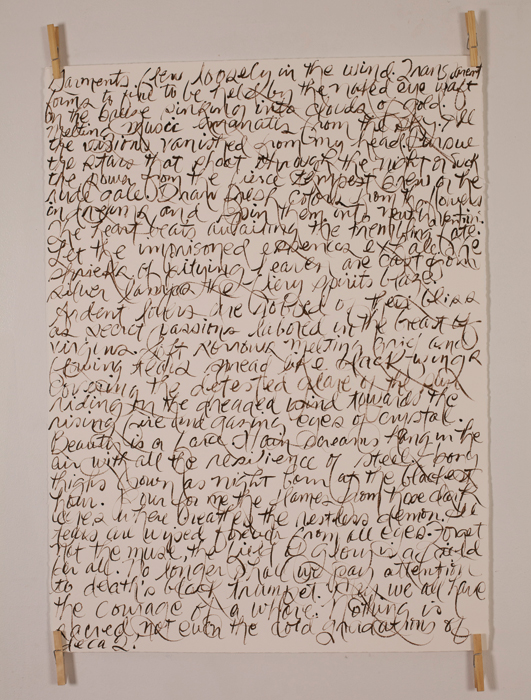 Garments flew loosely in the wind. Transparent
forms to fine to be held by the naked eye waft
on the breeze sinking into clouds of gold.
Melting music emanates from the sky. All
the visions vanished from my head. I pursue
the stars that shoot through the night or suck
the power from the fierce tempest brew on the
rude gale. Draw fresh colors from the flowers
in and spin them into
The heart beats awaiting the trembling fate.
Let the imprisoned essences exhale. The
shrieks of pitying heaven are cast from
silver lamps the fiery spirits blaze.
Ardent lovers are robbed of their bliss
as secret passions labored in the breast of
virgins. Soft sorrows melting and
flowing tears spread like black wings
covering the detested glare of the
riding on the dreaded wind towards the
rising fire and gazing eyes of crystal.
Beauty is a hard screams hang in the
air with all the resilience of steel
thighs as night born at the blackest
hour. for me the flames from those
where breathes the restless demon.
tears are wiped forever from all eyes. Forget
not the muse the of glory is a
for all. No longer shall we pay attention
to death's black trumpet. we all have
the courage of a whore. Nothing is
sacred not even the cold gradations of
decay.